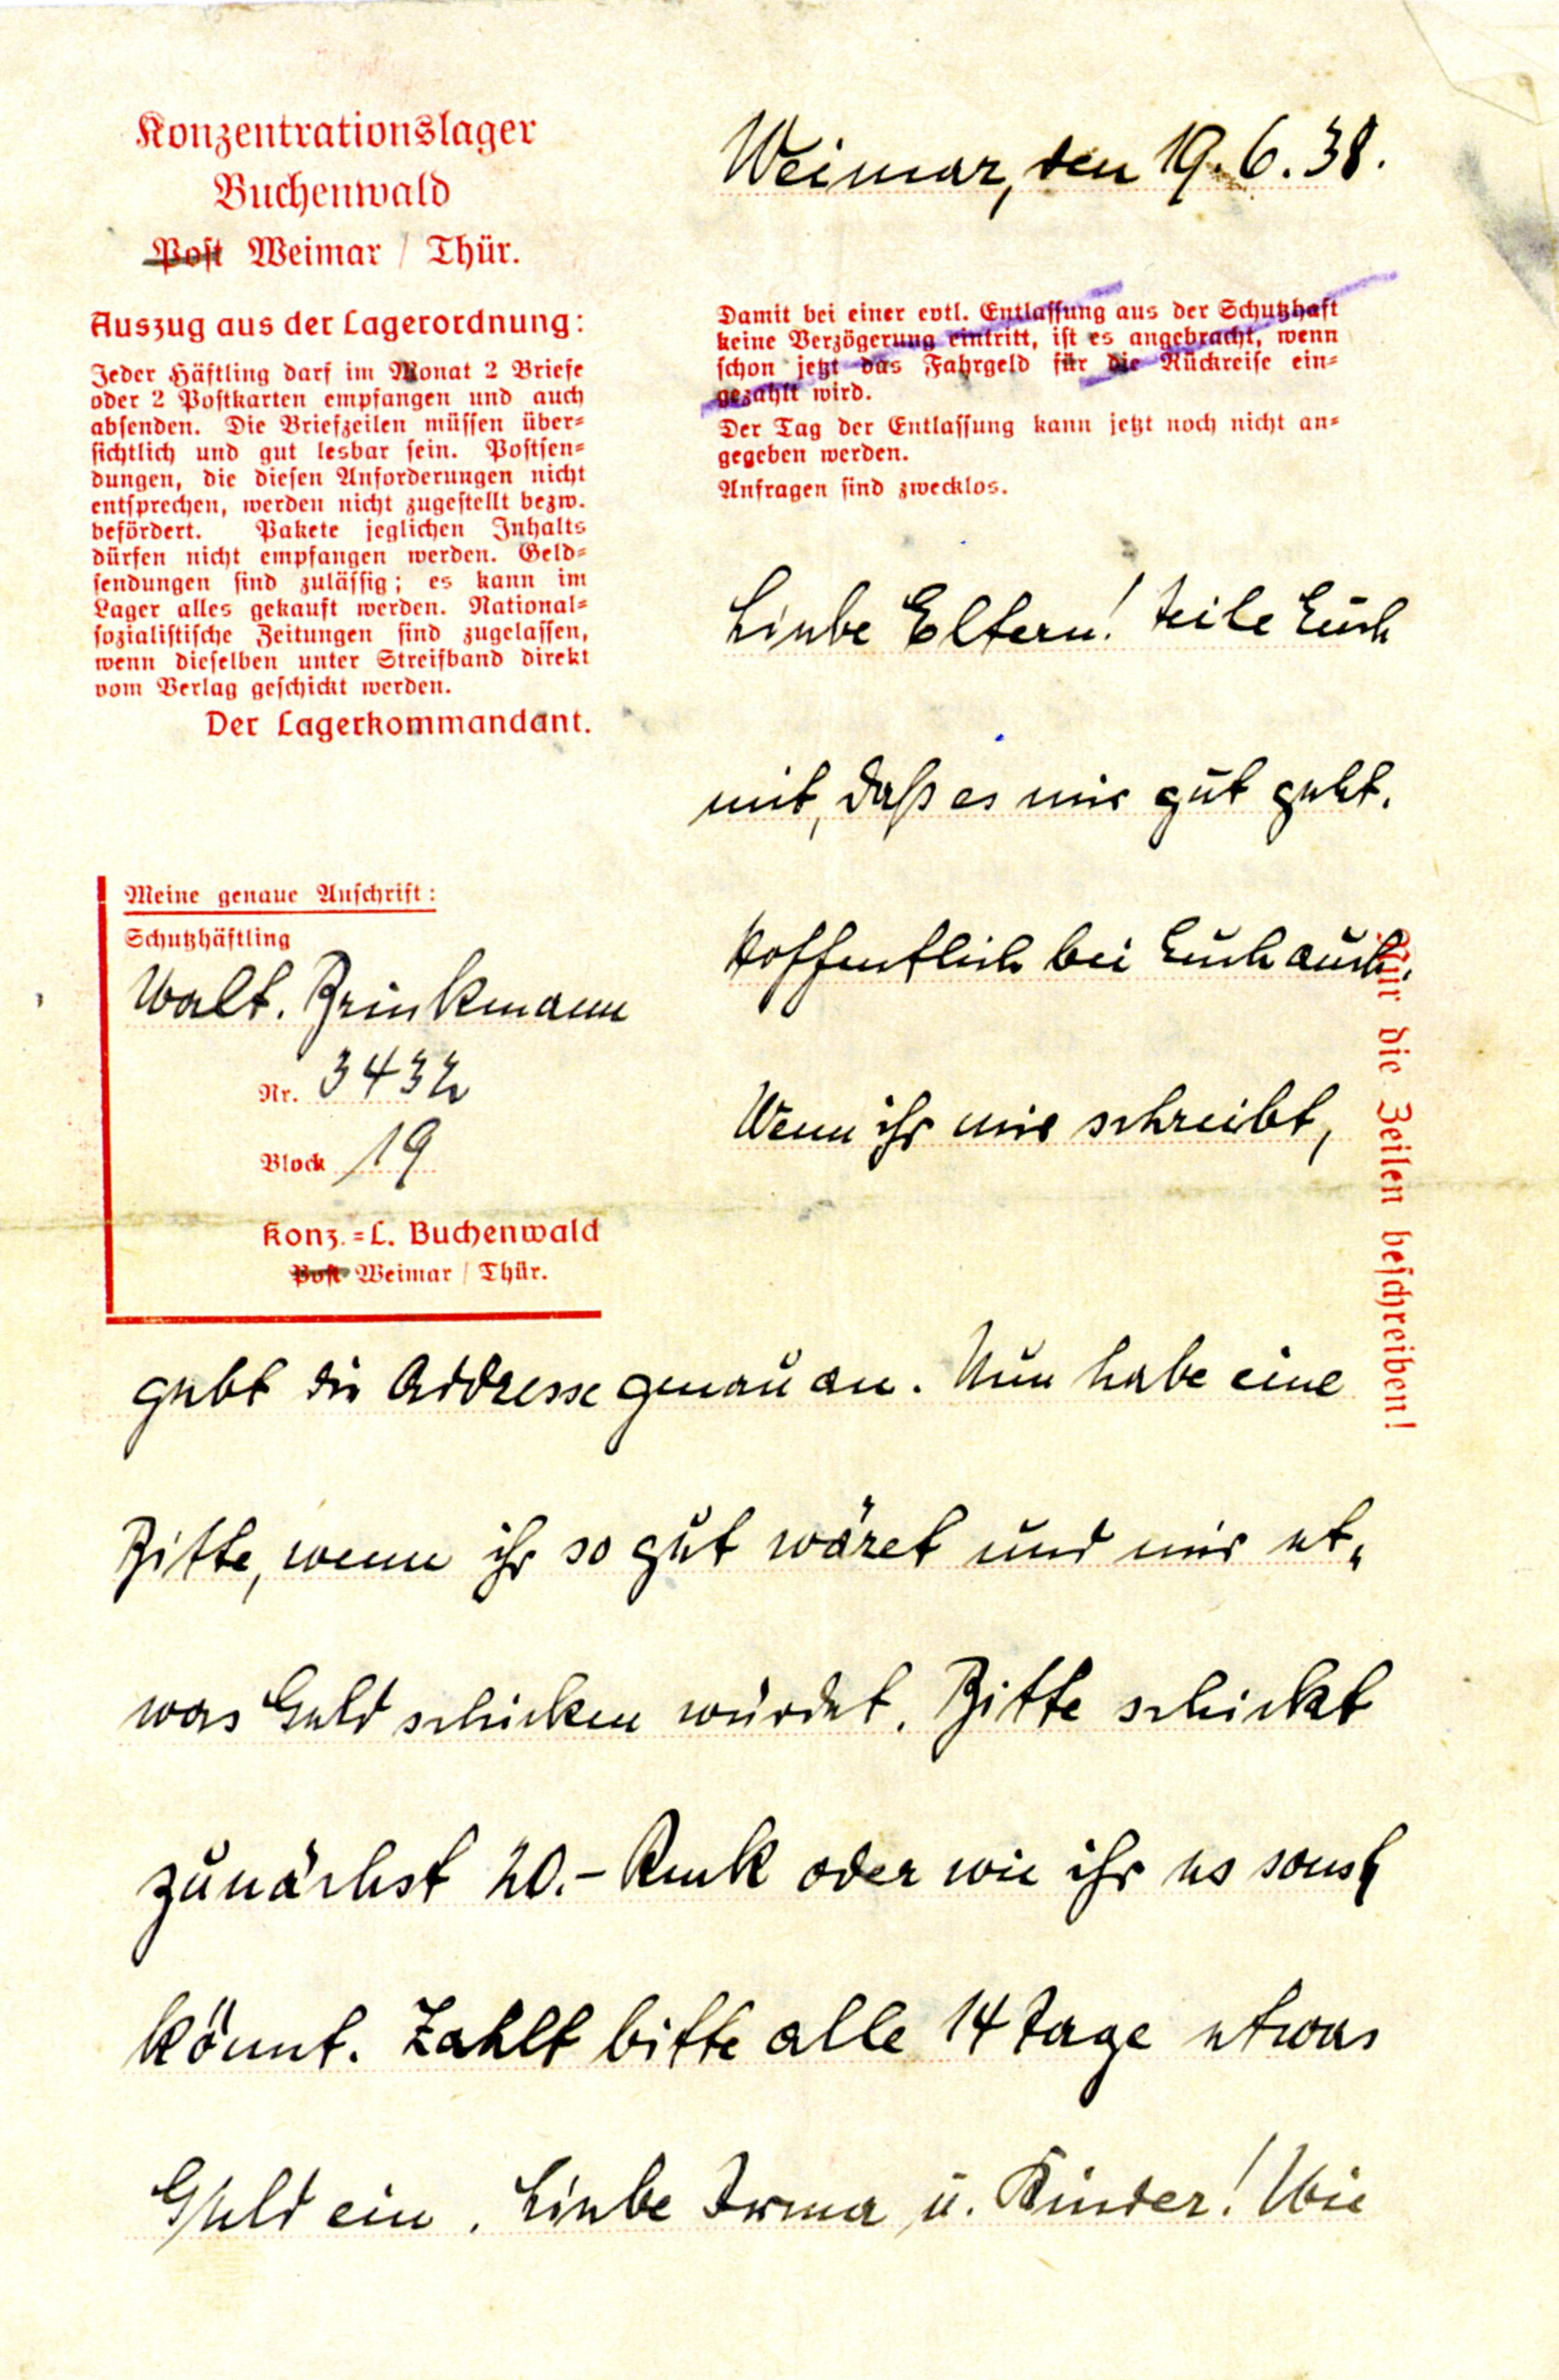 Konzentrationslager
Buchenwald
Post Weimar / Thür.
Auszug aus der Lagerordnung:
Jeder Häftling darf im Monat 2 Briefe
oder 2 Postkarten empfangen und auch
absenden. Die Briefzeilen müssen über-
sichtlich und gut lesbar sein. Postsen-
dungen, die diesen Anforderungen nicht
entsprechen, werden nicht zugestellt bezw.
befördert. Pakete jeglichen Inhalts
dürfen nicht empfangen werden. Geld-
sendungen sind zulässig; es kann im
Lager alles gekauft werden. National-
sozialistische Zeitungen sind zugelassen,
wenn dieselben unter Streifband direkt
vom Verlag geschickt werden.
Der Lagerkommandant.
Meine genaue Anschrift:
Schutzhäftling
Walt. Brinkmann
Nr. 3432
Block 19
Konz.-L. Buchenwald
Post Weimar / Thür.
Weimar, den 19.6.38.
Damit bei einer evtl. Entlassung aus der Schutzhaft
keine Verzögerung eintritt, ist es angebracht, wenn
schon jetzt das Fahrgeld für die Rückreise ein-
gezahlt wird.
Der Tag der Entlassung kann jetzt noch nicht an-
gegeben werden.
Anfragen sind zwecklos.
Liebe Eltern! teile Euch
mit, daß es mir gut geht.
hoffentlich bei Euch auch.
Wenn ihr mir schreibt,
Nur die Zeilen beschreiben!
gebt die Addresse genau an. Nun habe eine
Bitte, wenn ihr so gut wäret und mir et-
was Geld schicken würdet. Bitte schickt
zunächst 20.- Rmk oder wie ihr es sonst
könnt. Zahlt bitte alle 14 tage etwas
Geld ein. Liebe Irma u. Kinder! Wie